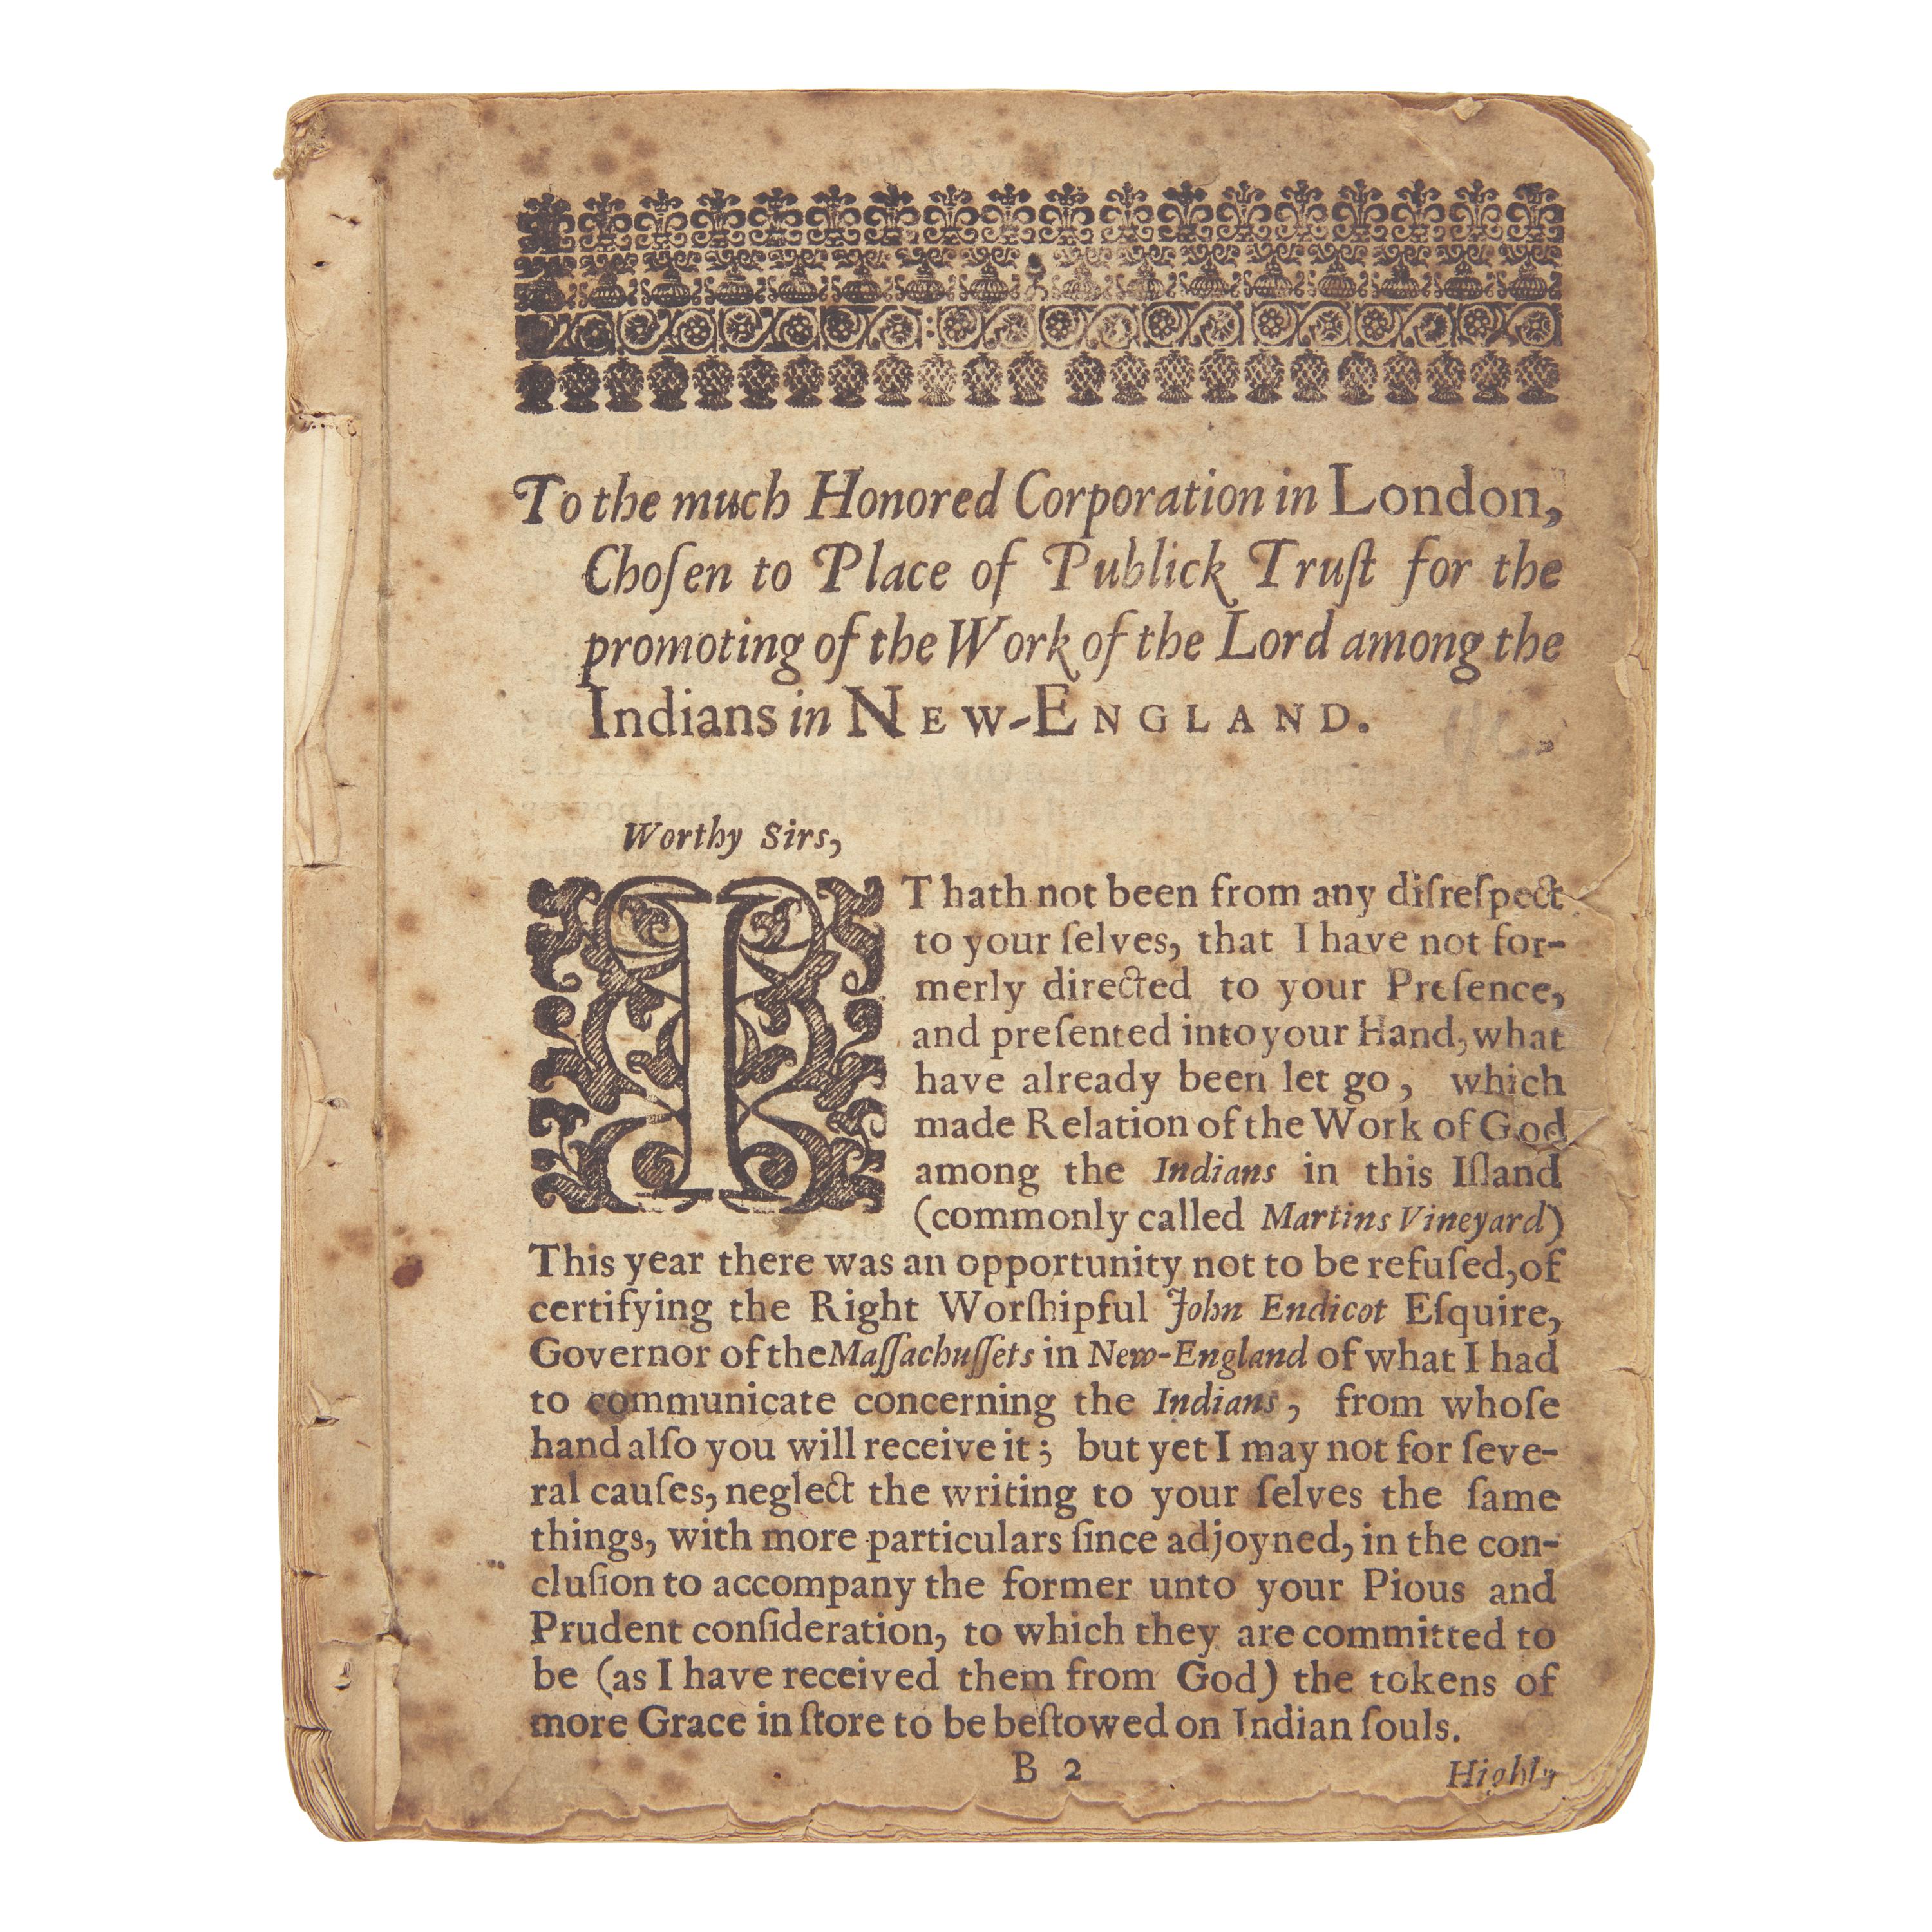 To the much Honored Corporation in London,
Choſen to Place of Publick Truſt for the
promoting of the Work of the Lord among the
Indians in NEW-ENGLAND.
Worthy Sirs,
IT hath not been from any diſreſpect
to your ſelves, that I have not for-
merly directed to your Preſence,
and preſented into your Hand, what
have already been let go, which
made Relation of the Work of God
among the Indians in this Iſland
(commonly called Martins Vineyard)
This year there was an opportunity not to be refuſed, of
certifying the Right Worſhipful John Endicot Eſquire,
Governor of the Maſſachuſſets in New-England of what I had
to communicate concerning the Indians, from whoſe
hand alſo you will receive it; but yet I may not for ſeve-
ral cauſes, neglect the writing to your ſelves the ſame
things, with more particulars ſince adjoyned, in the con-
cluſion to accompany the former unto your Pious and
Prudent conſideration, to which they are committed to
be (as I have received them from God) the tokens of
more Grace in ſtore to be beſtowed on Indian ſouls.
B 2
Highly